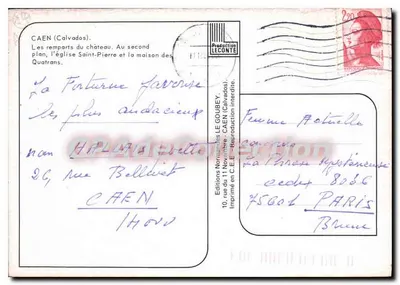 CAEN (Calvados).
Les remparts du château. Au second
plan, l'église Saint-Pierre et la maison des
Quatrans.
Production
LECONTE
2,20
La Fortune favorise
les plus audacieux
26, rue Bellivet
CAEN
14000
Editions Normandes LE GOUBEY
10, rue du 11 Novembre - CAEN (Calvados).
Imprimé en C.E.E. - Reproduction interdite.
Femme Actuelle
La Phrase Mystérieuse
cedex 8086
75601 PARIS
Brune